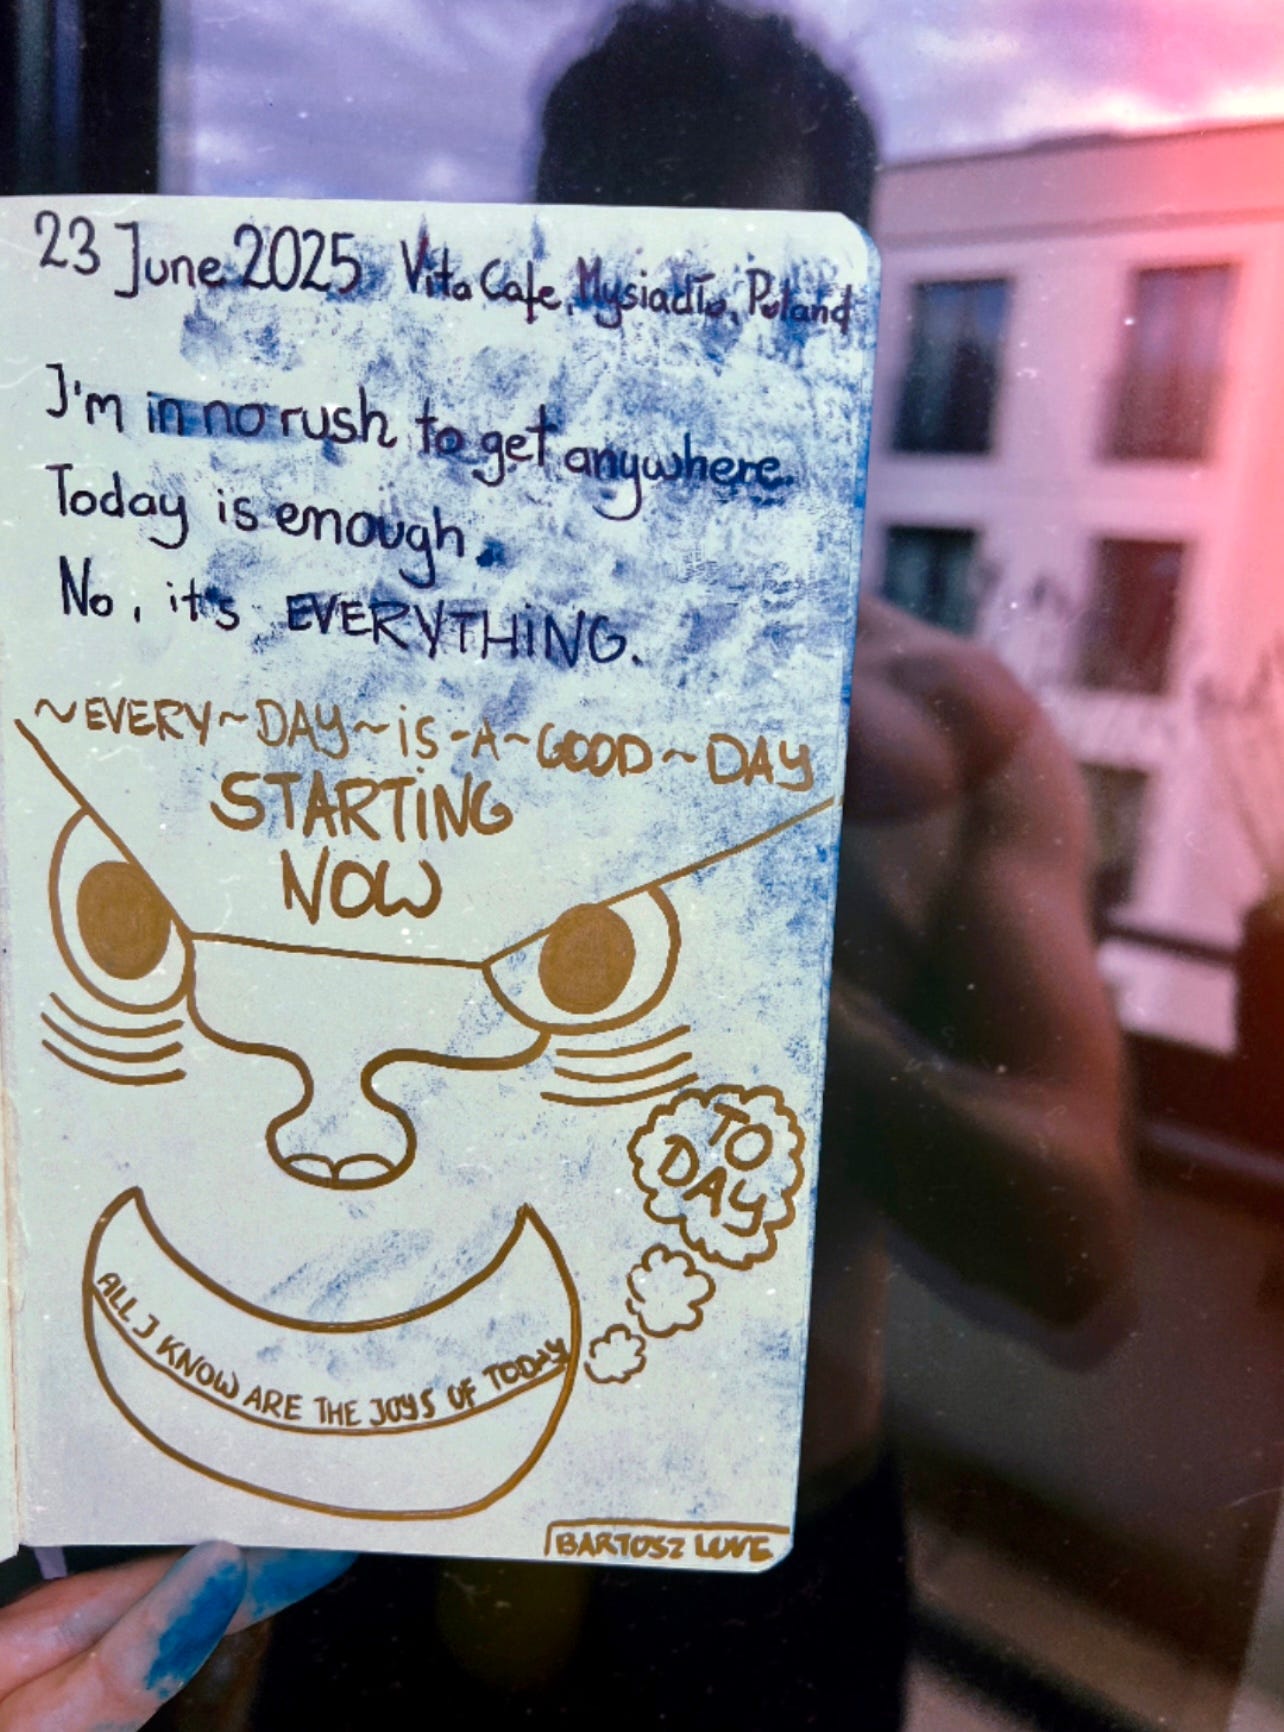 23 June 2025 Vita Cafe, Mysiadło, Poland
I'm in no rush to get anywhere.
Today is enough.
No, it's EVERYTHING.
~EVERY~DAY~iS-A~GOOD~DAY
STARTiNG
NOW
TO
DAY
ALL I KNOW ARE THE JOYS OF TODAY
BARTOSZ LOVE